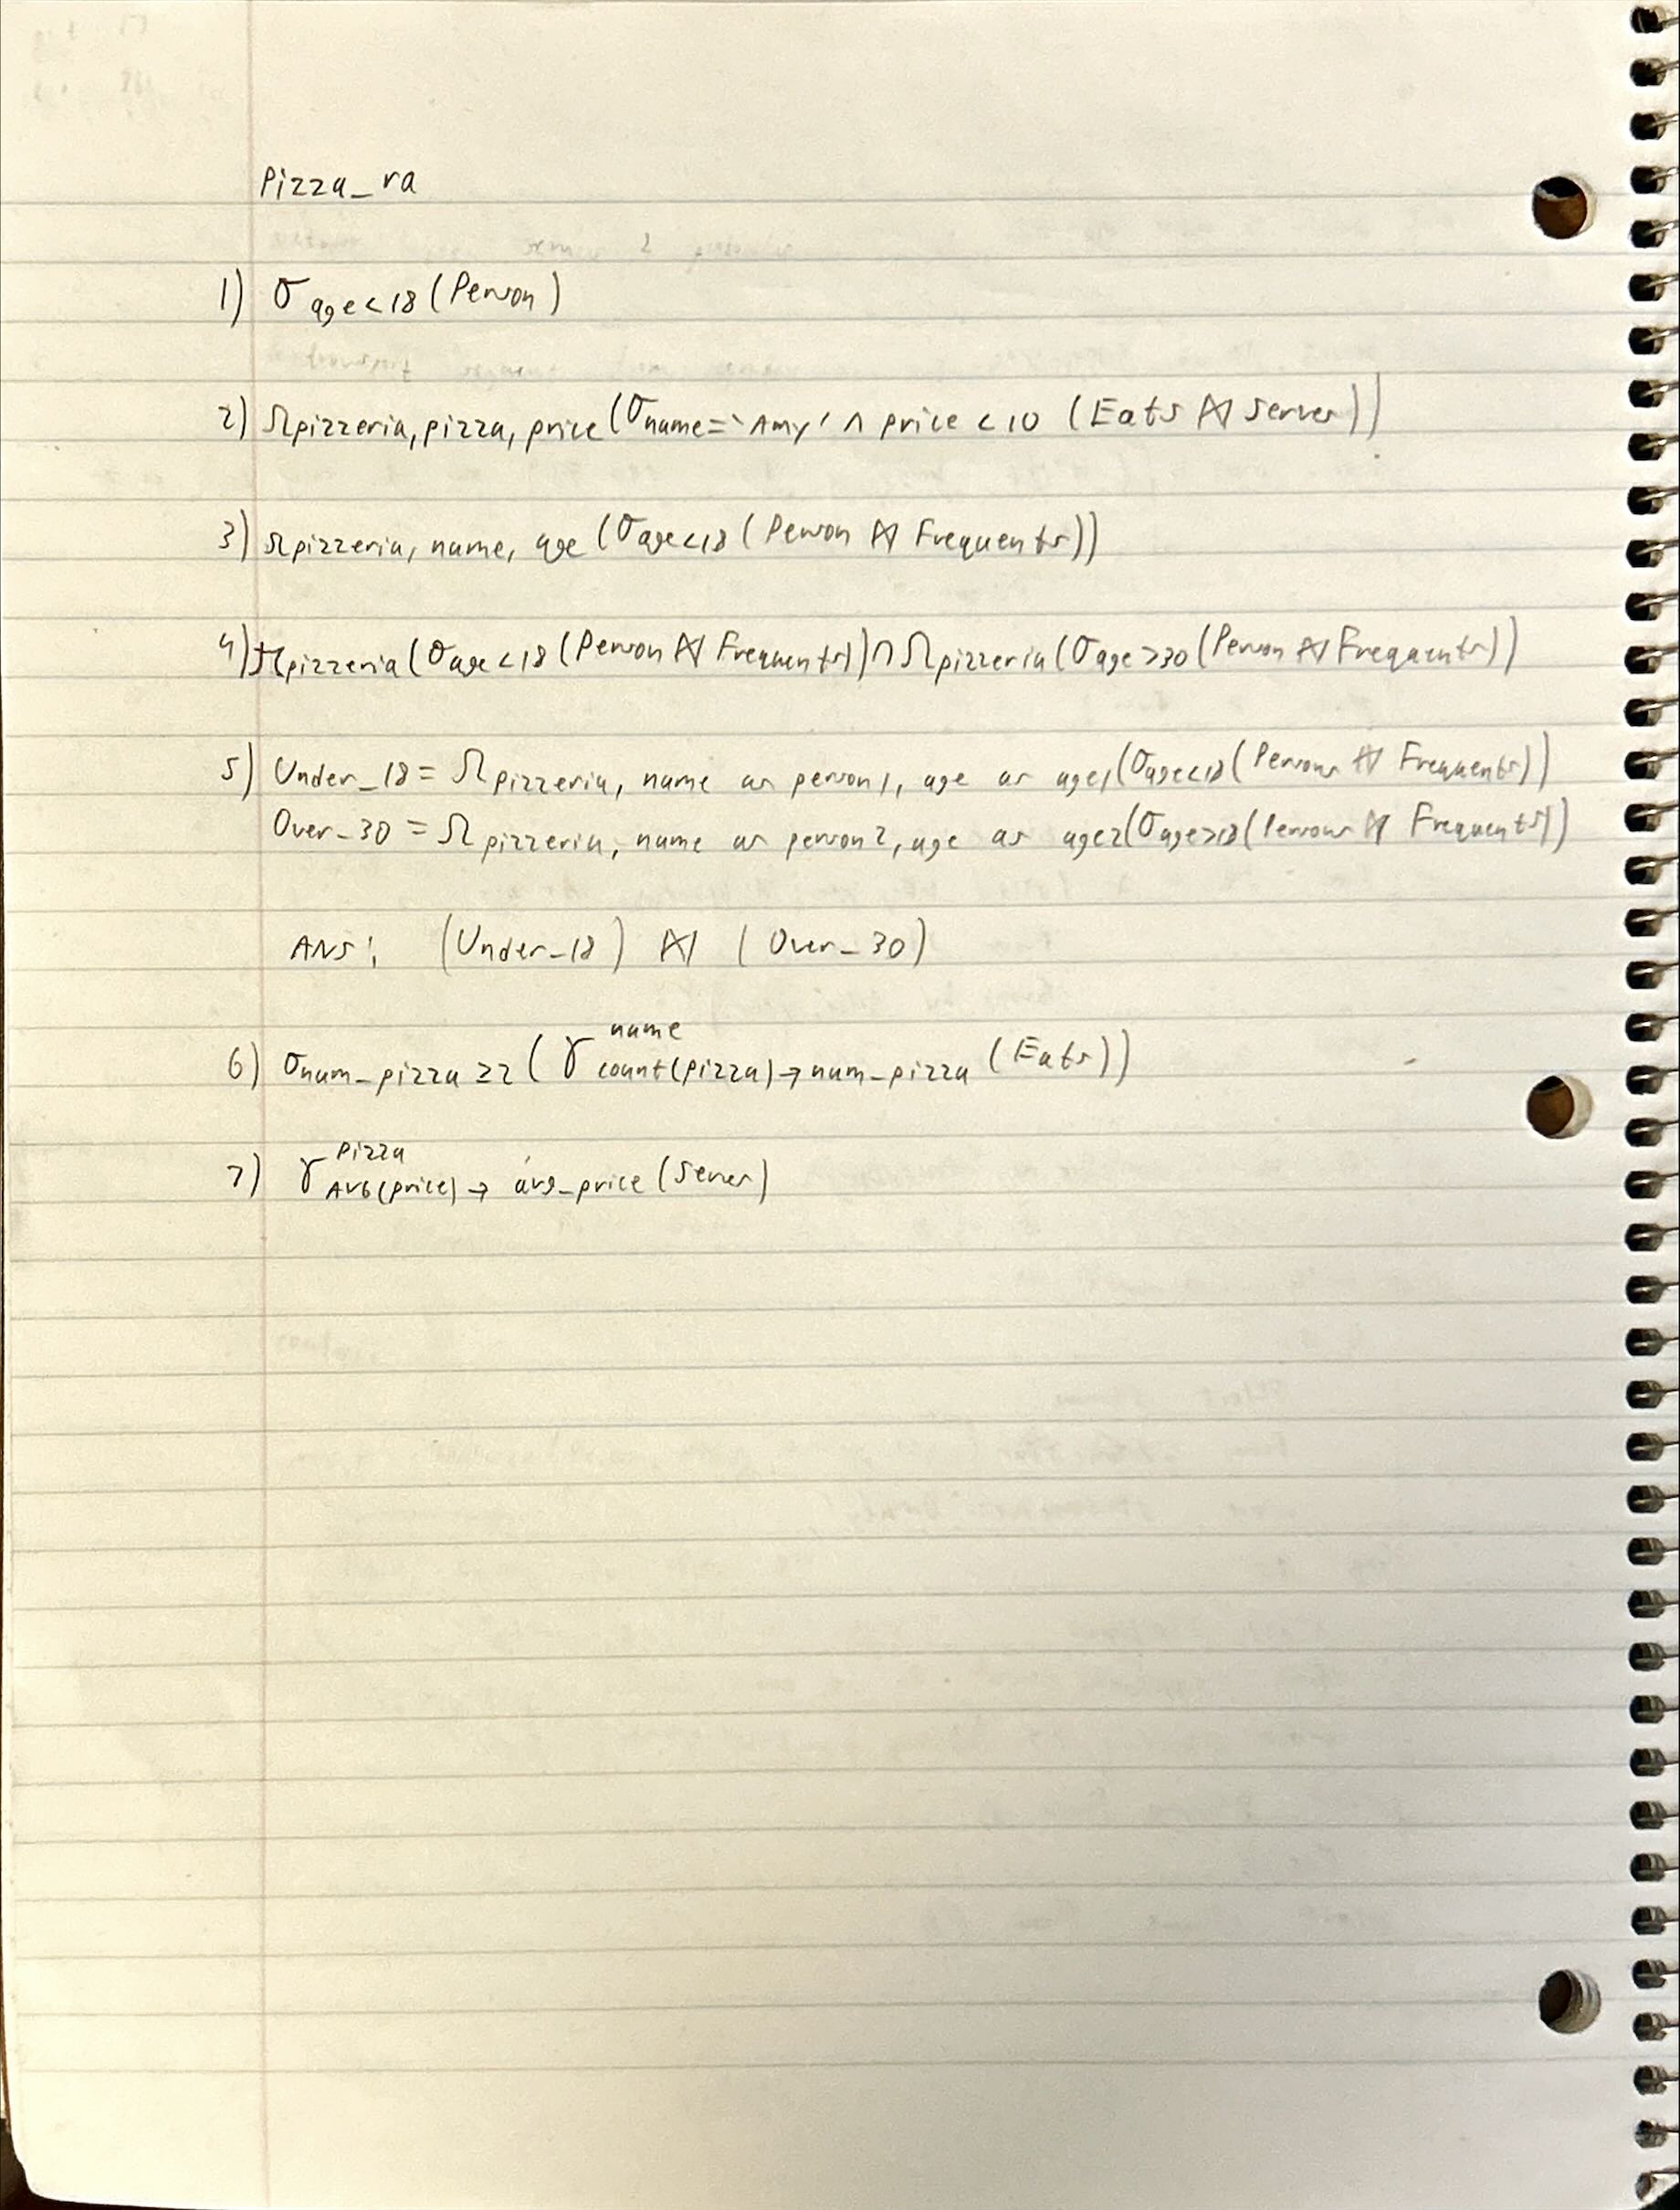 Pizza_ra
1) σ age<18 (Person)
2) π pizzeria, pizza, price (σ name='Amy' ∧ price < 10 (Eats ⋈ Serves))
3) π pizzeria, name, age (σ age<18 (Person ⋈ Frequents))
4) π pizzeria (σ age<18 (Person ⋈ Frequents)) ∩ π pizzeria (σ age>30 (Person ⋈ Frequents))
5) Under_18 = π pizzeria, name as person1, age as age1 (σ age<18 (Persons ⋈ Frequents))
Over_30 = π pizzeria, name as person2, age as age2 (σ age>18 (Persons ⋈ Frequents))
ANS: (Under_18) ⋈ (Over_30)
6) σ num_pizza ≥2 (γ name count(pizza) → num_pizza (Eats))
7) γ pizza AVG(price) → avg_price (Serves)